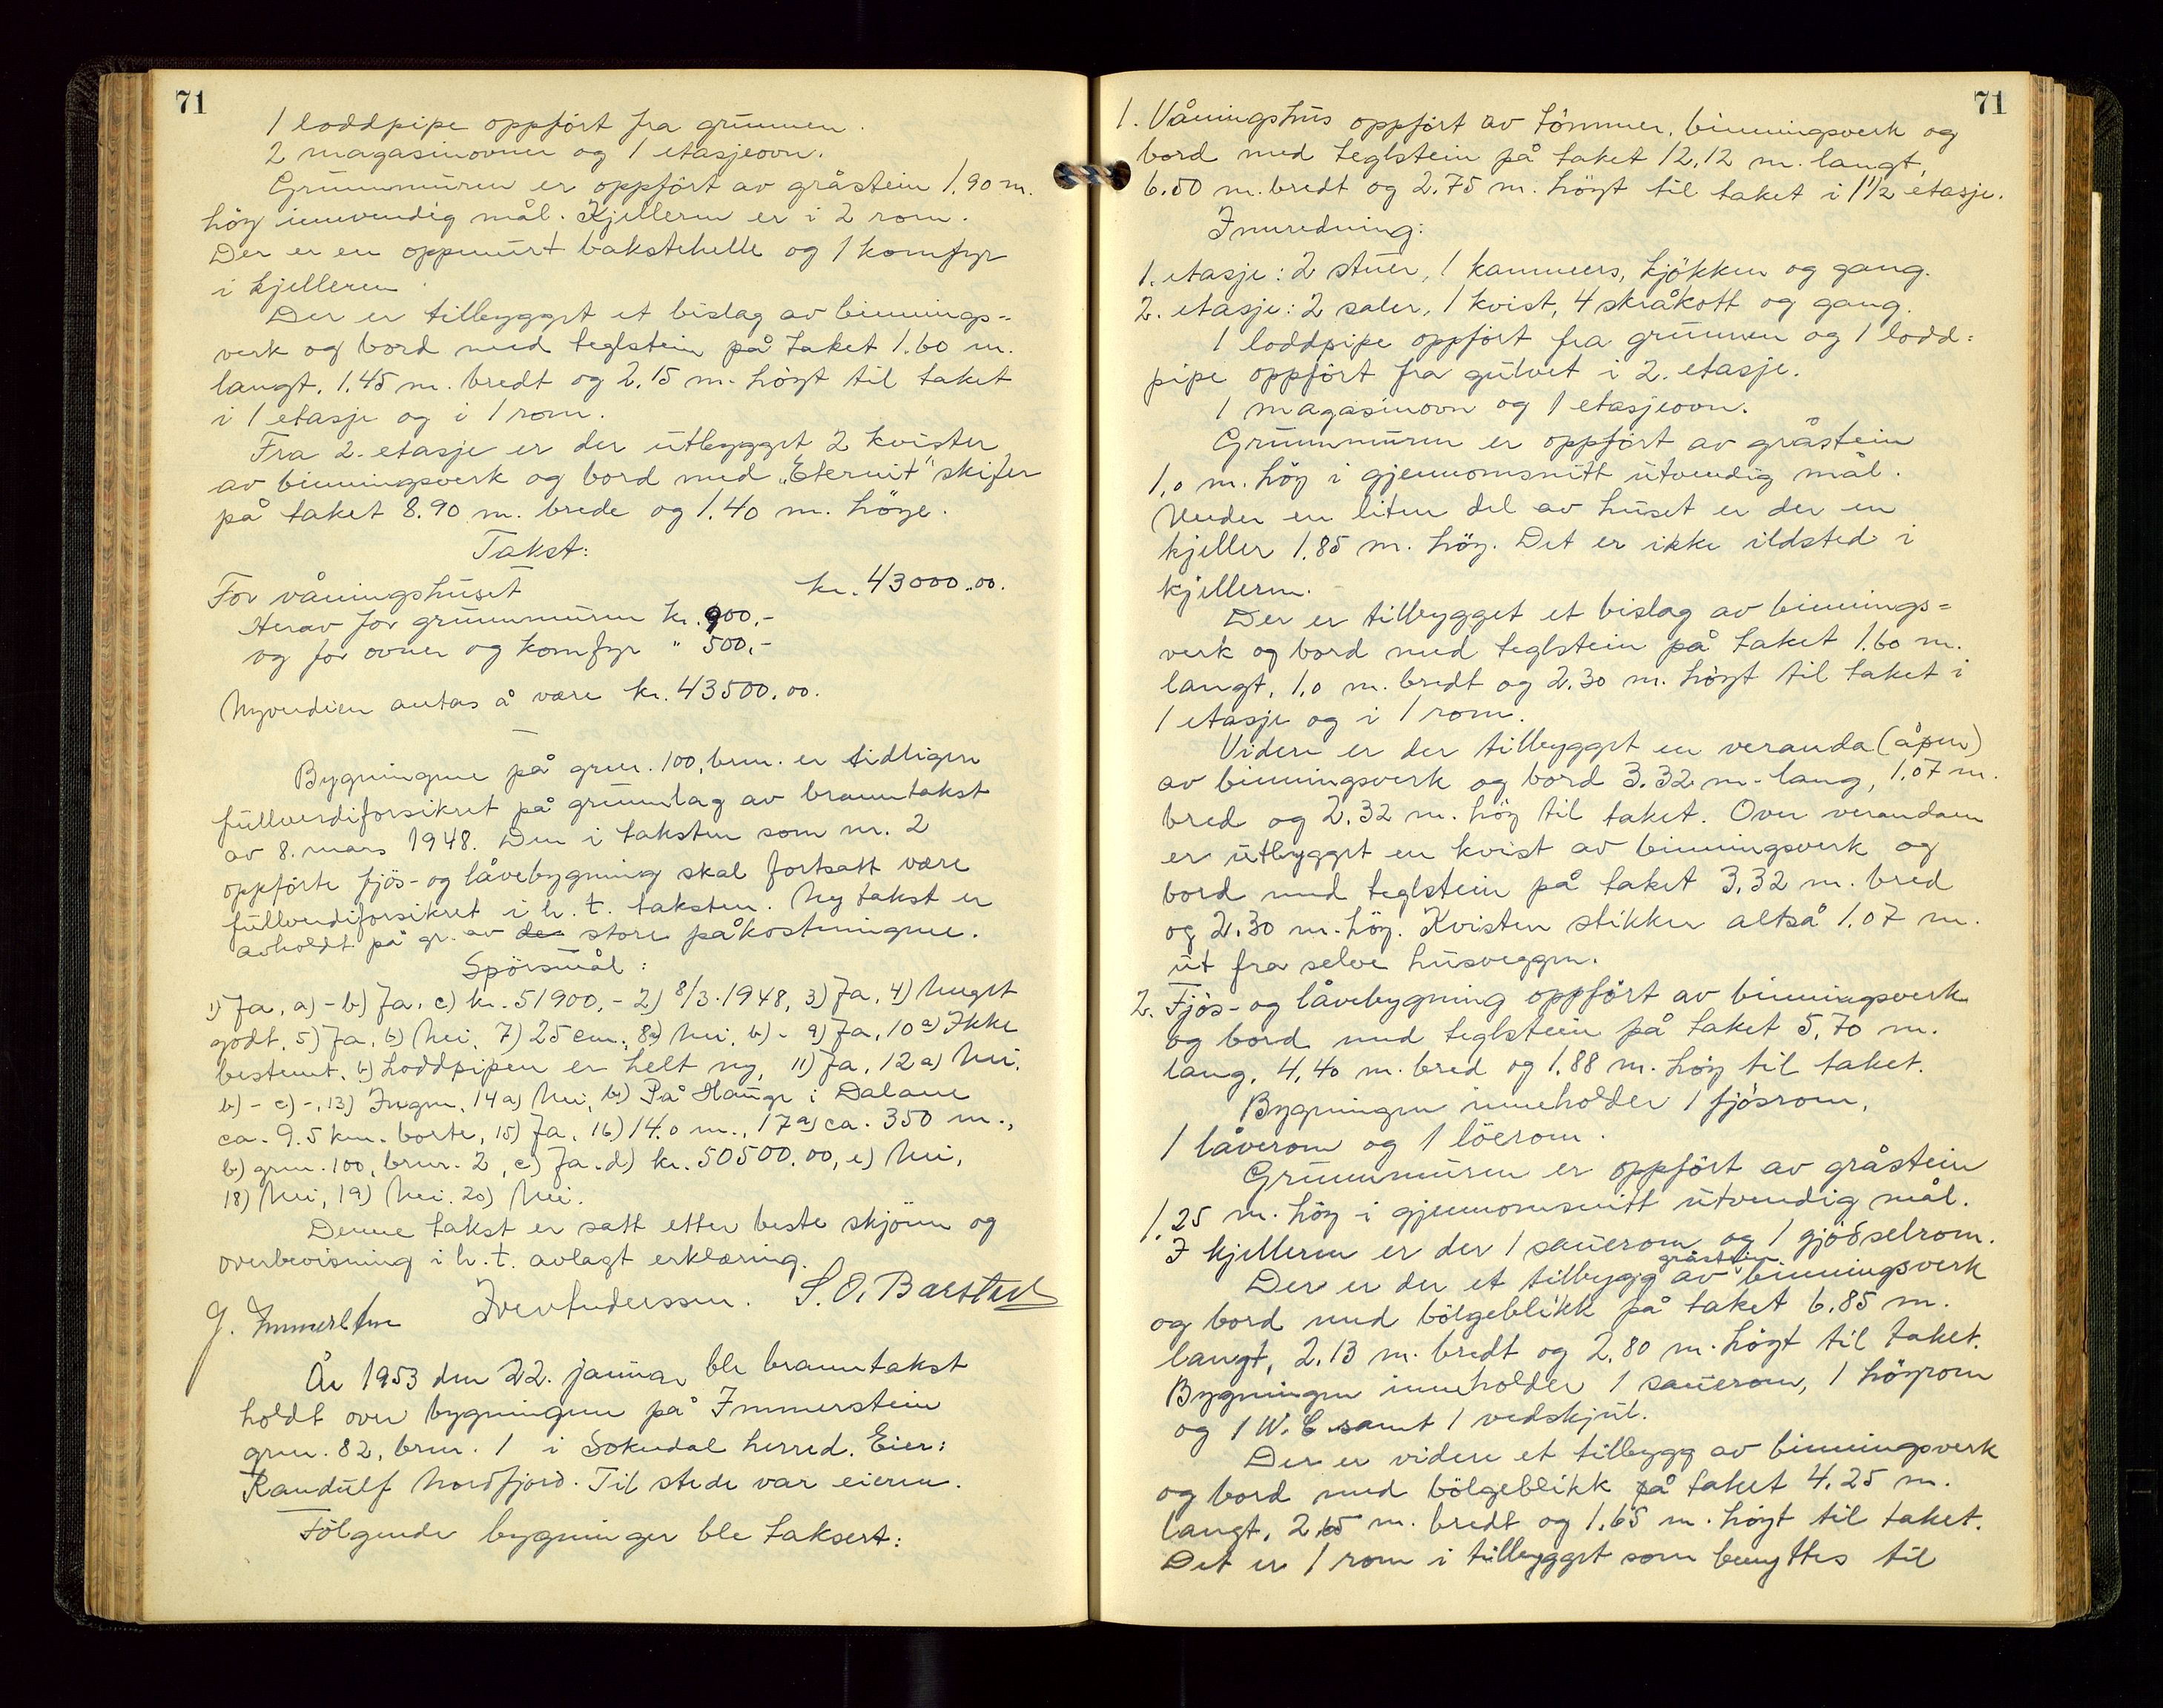 71
1 loddpipe oppført fra grunnen.
2 magasinovner og 1 etasjeovn.
Grunnmuren er oppført av gråstein 1.90 m.
høy innvendig mål. Kjelleren er i 2 rom.
Der er en oppmurt bakstehelle og 1 komfyr
i kjelleren.
Der er tilbygget et bislag av binnings-
verk og bord med teglstein på taket 1.60 m.
langt, 1.45 m. bredt og 2.15 m. høyt til taket
i 1 etasje og i 1 rom.
Fra 2. etasje er der utbygget 2 kvister
av binningsverk og bord med „Eternit" skifer
på taket 8.90 m. brede og 1.40 m. høye.
Takst:
For våningshuset kr. 43000.00.
Herav for grunnmuren kr. 900,-
og for ovner og komfyr " 500,-
Nyverdien antas å være kr. 43500.00.
Bygningene på grnr. 100, brnr. er tidligere
fullverdiforsikret på grunnlag av branntakst
av 8. mars 1948. Den i taksten som nr. 2
oppførte fjøs- og låvebygning skal fortsatt være
fullverdiforsikret i h. t. taksten. Ny takst er
avholdt på gr. av store påkostningene.
Spørsmål:
1) Ja, a) - b) Ja, c) kr. 51900,- 2) 8/3-1948, 3) Ja, 4) Meget
godt, 5) Ja, 6) Nei, 7) 25 cm., 8a) Nei, b) - 9) Ja, 10a) Ikke
bestemt. b) Loddpipen er helt ny, 11) Ja, 12a) Nei,
b) - c) -, 13) Ingen, 14a) Nei, b) På Hauge i Dalane
ca. 9.5 km. borte, 15) Ja, 16) 14.0 m., 17a) ca. 350 m.,
b) grnr. 100, brnr. 2, c) Ja. d) kr. 50500.00, e) Nei,
18) Nei, 19) Nei. 20) Nei.
Denne takst er satt etter beste skjønn og
overbevisning i h. t. avlagt erklæring.
Iver Anderssen. S. O. Barstad
År 1953 den 22. januar ble branntakst
holdt over bygningene på Immerstein
grnr. 82, brnr. 1 i Sokndal herred. Eier:
Randulf Nordfjord. Til stede var eieren.
Følgende bygninger ble taksert:
71
1. Våningshus oppført av tømmer, binningsverk og
bord med teglstein på taket 12.12 m. langt,
6.50 m. bredt og 2.75 m. høyt til taket i 1 1/2 etasje.
Innredning:
1. etasje: 2 stuer, 1 kammers, kjøkken og gang.
2. etasje: 2 saler, 1 kvist, 4 skråkott og gang.
1 loddpipe oppført fra grunnen og 1 lodd=
pipe oppført fra gulvet i 2. etasje.
1 magasinovn og 1 etasjeovn.
Grunnmuren er oppført av gråstein
1.0 m. høy i gjennomsnitt utvendig mål.
Under en liten del av huset er der en
kjeller 1.85 m. høy. Det er ikke ildsted i
kjelleren.
Der er tilbygget et bislag av binnings=
verk og bord med teglstein på taket 1.60 m.
langt, 1.0 m. bredt og 2.30 m. høyt til taket i
1 etasje og i 1 rom.
Videre er der tilbygget en veranda (åpen)
av binningsverk og bord 3.32 m. lang, 1.07 m.
bred og 2.32 m. høy til taket. Over verandaen
er utbygget en kvist av binningsverk og
bord med teglstein på taket 3.32 m. bred
og 2.30 m. høy. Kvisten stikker altså 1.07 m.
ut fra selve husveggen.
2. Fjøs- og låvebygning oppført av binningsverk
og bord med teglstein på taket 5.70 m.
lang, 4.40 m. bred og 1.88 m. høy til taket.
Bygningen inneholder 1 fjøsrom,
1 låverom og 1 löerom.
Grunnmuren er oppført av gråstein
1.25 m. høy i gjennomsnitt utvendig mål.
I kjelleren er der 1 sauerom og 1 gjödselrom.
gråstein
Der er der et tilbygg av binningsverk
og bord med bölgeblikk på taket 6.85 m.
langt, 2.13 m. bredt og 2.80 m. högt til taket.
Bygningen inneholder 1 sauerom, 1 höyrom
og 1 W. C samt 1 vedskjul.
Der er videre et tilbygg av binningsverk
og bord med bölgeblikk på taket 4.25 m.
langt, 2.65 m. bredt og 1.65 m. höyt til taket.
Det er 1 rom i tilbygget som benyttes til